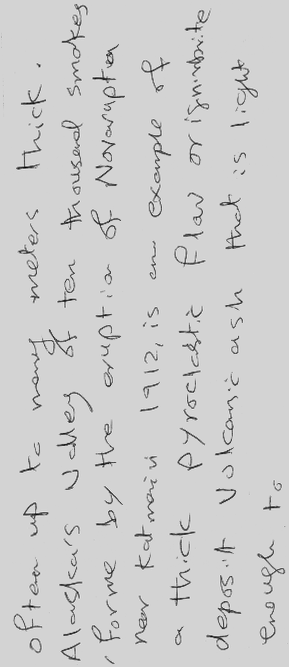 often up to many meters thick.
Alaska's Valley of ten thousand smokes
, forme by the eruption of Novarupta
near Katmai in 1912, is an example of
a thick pyroclastic flow or ignimbrite
deposit Volcanic ash that is light
enough to